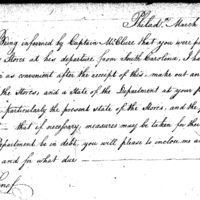 Philad.ª March
Being informed by Captain McClure that you were
Stores at his departure from South Carolina, I ha
as convenient after the receipt of this, make out an
the Stores, and a State of the Department at your p
particularly the present state of the Stores, and the
that if necessary measures may be taken for th
Department be in debt, you will please to enclose me a
and for what due